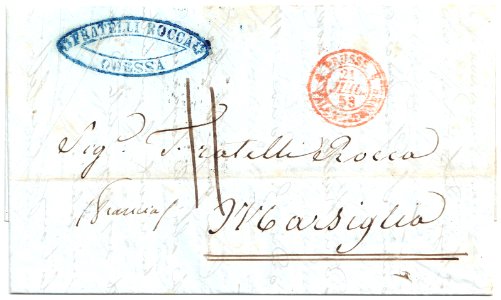 FRATELLI ROCCA
ODESSA
21
JUIL.
58
Sig. Fratelli Rocca
(Francia)
Marsiglia